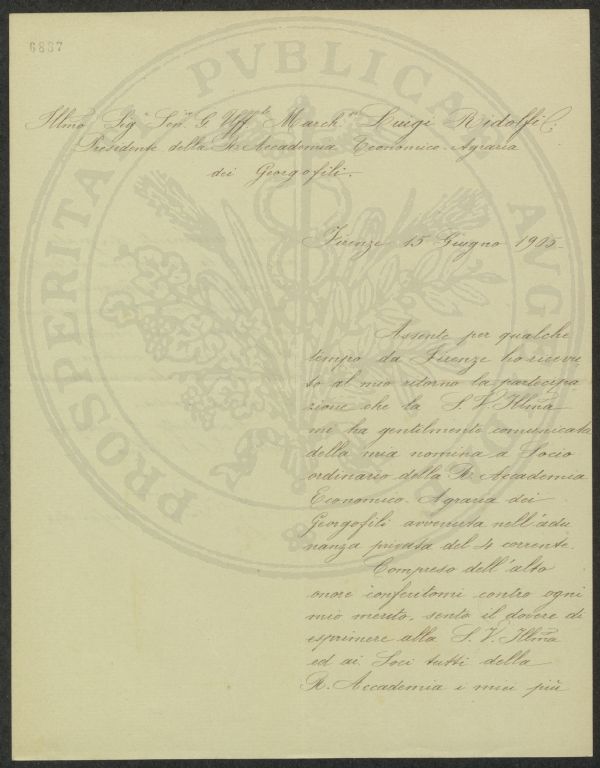 6887
PROSPERITATI PVBLICAE AVG
Illmo Sig. Sen. G. Uff. March. Luigi Ridolfi
Presidente della R. Accademia Economico-Agraria
dei Georgofili.
Firenze 15 Giugno 1905
Assente per qualche
tempo da Firenze ho ricevu
to al mio ritorno la partecipa
zione che la S. V. Illma
mi ha gentilmente comunicata
della mia nomina a Socio
ordinario della R. Accademia
Economico-Agraria dei
Georgofili avvenuta nell'adu
nanza privata del 4 corrente.
Compreso dell'alto
onore conferitomi contro ogni
mio merito, sento il dovere di
esprimere alla S. V. Illma
ed ai Soci tutti della
R. Accademia i miei più